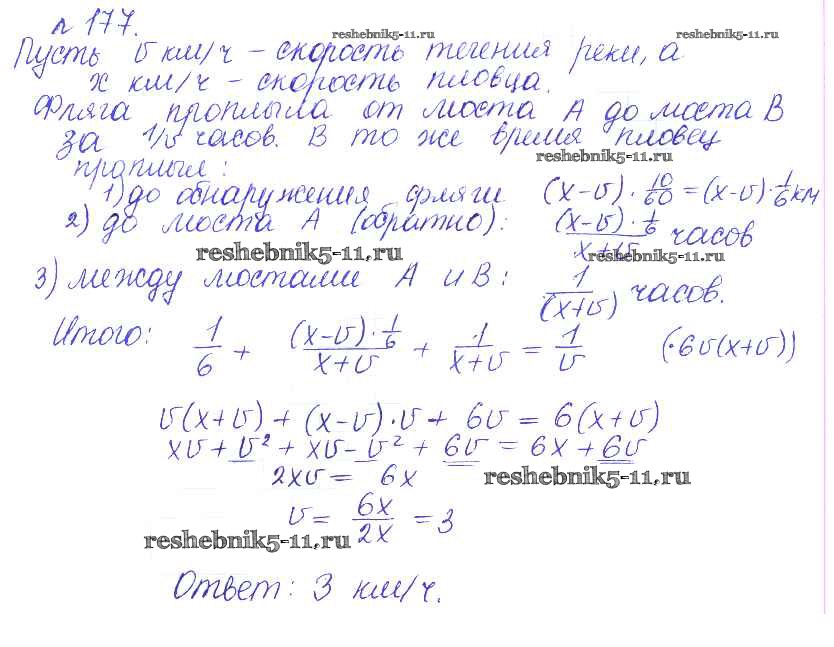 № 177.
reshebnik5-11.ru
reshebnik5-11.ru
Пусть v км/ч – скорость течения реки, а
x км/ч – скорость пловца.
Фляга проплыла от моста A до моста B
за 1/v часов. В то же время пловец
reshebnik5-11.ru
проплыл:
1) до обнаружения фляги (x-v)·10/60=(x-v)·1/6 км
2) до моста A (обратно): (x-v)·1/6 / x+v часов
reshebnik5-11.ru
reshebnik5-11.ru
3) между мостами A и B: 1/(x+v) часов.
Итого: 1/6 + (x-v)·1/6 / x+v + 1/x+v = 1/v (·6v(x+v))
v(x+v) + (x-v)·v + 6v = 6(x+v)
xv + v² + xv - v² + 6v = 6x + 6v
2xv = 6x
reshebnik5-11.ru
v = 6x/2x = 3
reshebnik5-11.ru
Ответ: 3 км/ч.